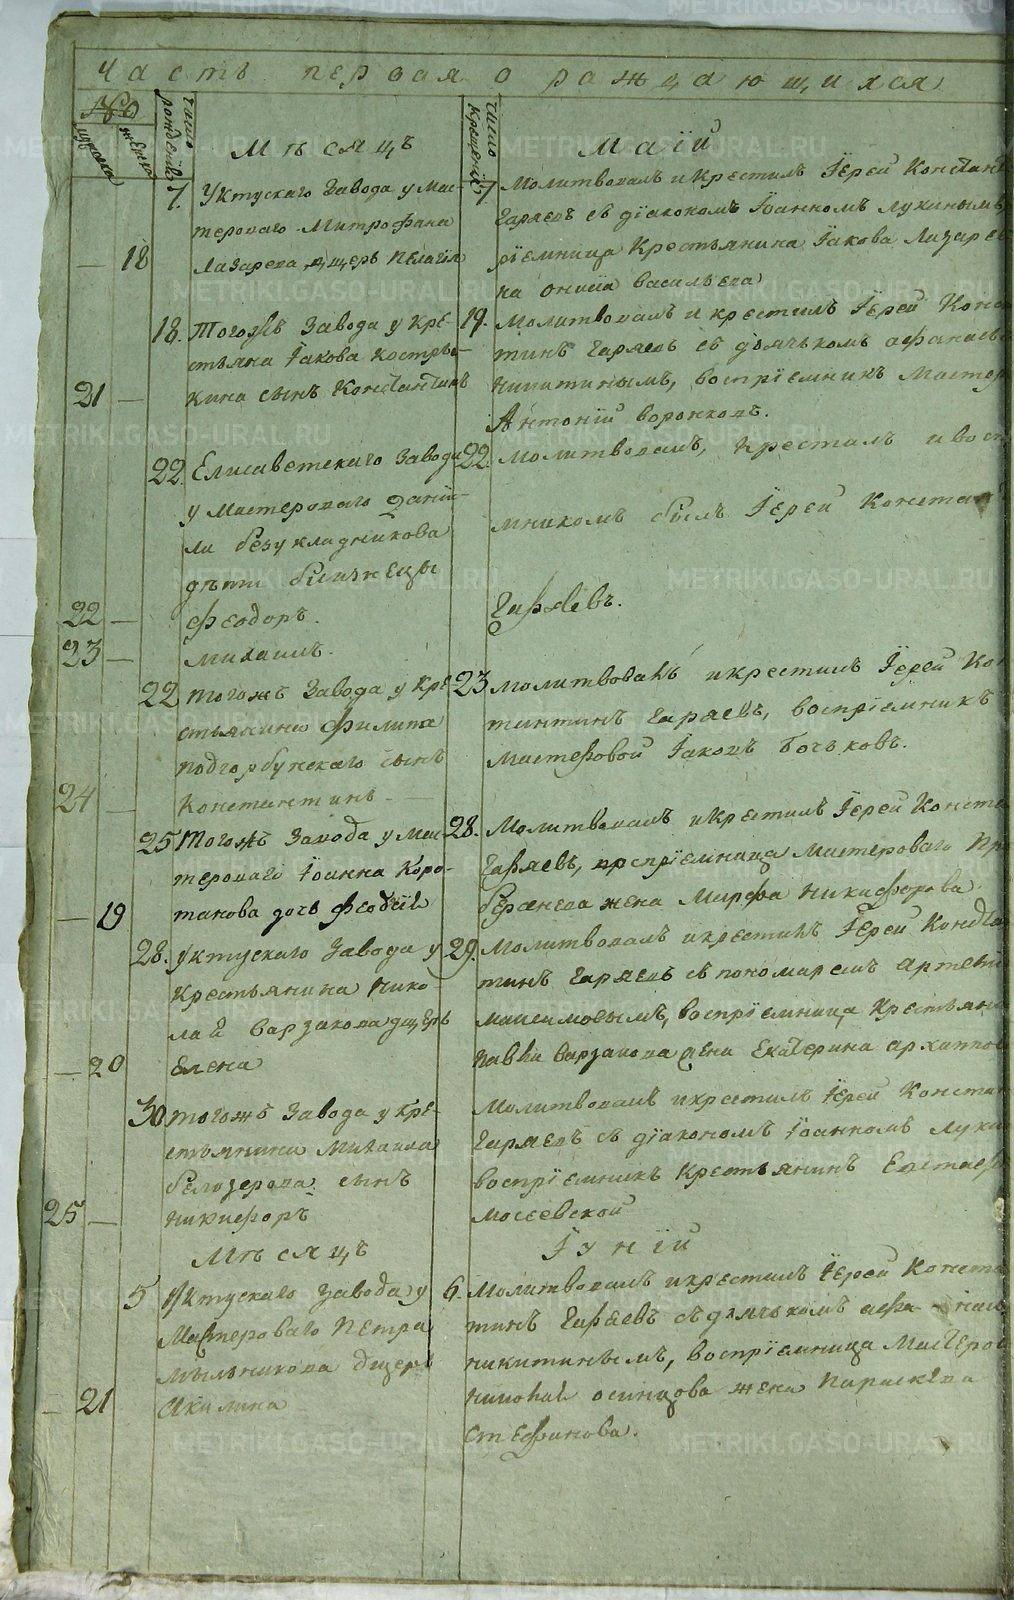 Часть первая о раждающихся
№
мужеска
женска
число рождества
Мѣсяцъ
число крещенія
Маій
7. Уктускаго Завода у мас-
тероваго Митрофана
18 Лазарева дщерь Пелагія
7 Молитвовалъ и крестилъ Іерей Констан
Гаряевъ съ діакономъ Іоанномъ Лукинымъ
ріемница Крестьянина Іакова Лазарев
на Васильева
18. Тогожъ Завода у кре-
стьяна Іакова Костры-
21 кина сынъ Константинъ
19. Молитвовалъ и крестилъ Іерей Конс
тинъ Гаряевъ съ дьячькомъ Афанасье
Никитинымъ, воспріемникъ мастер
Антоній Воронковъ.
22. Елисаветскаго Завода
у мастероваго Даніи-
ла Безукладникова
дѣти близнецы
22 Феодоръ.
23 Михаилъ.
22. Молитвовалъ, крестилъ и восп
мникомъ былъ Іерей Конста
Гаряевъ.
22 Тогожъ Завода у кре-
стьянина Филипа
Подгорбунскаго сынъ
24 Константинъ
23 Молитвовалъ и крестилъ Іерей Кон
тинтинъ Гаряевъ, воспріемникъ
мастеровой Іаковъ Бочьковъ.
25 Тогожъ Завода у мас-
тероваго Іоанна Коро-
19 такова дочь
28. Молитвовалъ и крестилъ Іерей Конста
Гаряевъ, воспріемница мастероваго
жена Марфа Никифорова.
28. Уктускаго Завода у
Крестьянина Нико-
лай Варзакова дщерь
20 Елена
29. Молитвовалъ и крестилъ Іерей Конста
тинъ Гаряевъ съ пономаремъ Артемі
Максимовымъ, воспріемница Крестьян
Павла Варзакова жена Екатерина Архипов
30 тогожъ Завода у кре-
стьянина Михаила
Белозерова сынъ
25 Никифоръ
Молитвовалъ и крестилъ Іерей Конста
Гаряевъ съ діакономъ Іоанномъ Луки
воспріемникъ Крестьянинъ Евстаф
Мосеевской
Мѣсяцъ
Іуній
5 Уктускаго Завода у
Мастероваго Петра
Мыльникова дщерь
21 Акилина
6. Молитвовалъ и крестилъ Іерей Конста
тинъ Гаряевъ съ дьячькомъ Афа-нась
Никитинымъ, воспріемница Мастеров
Николая Осинцова жена Параскева
Стефанова.
METRIKI.GASO-URAL.RU